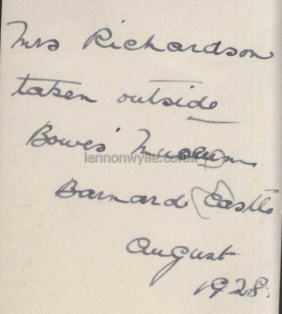 Mrs Richardson
taken outside
Bowes' Museum
lennonwylie.co.uk
Barnard Castle
August
1928.